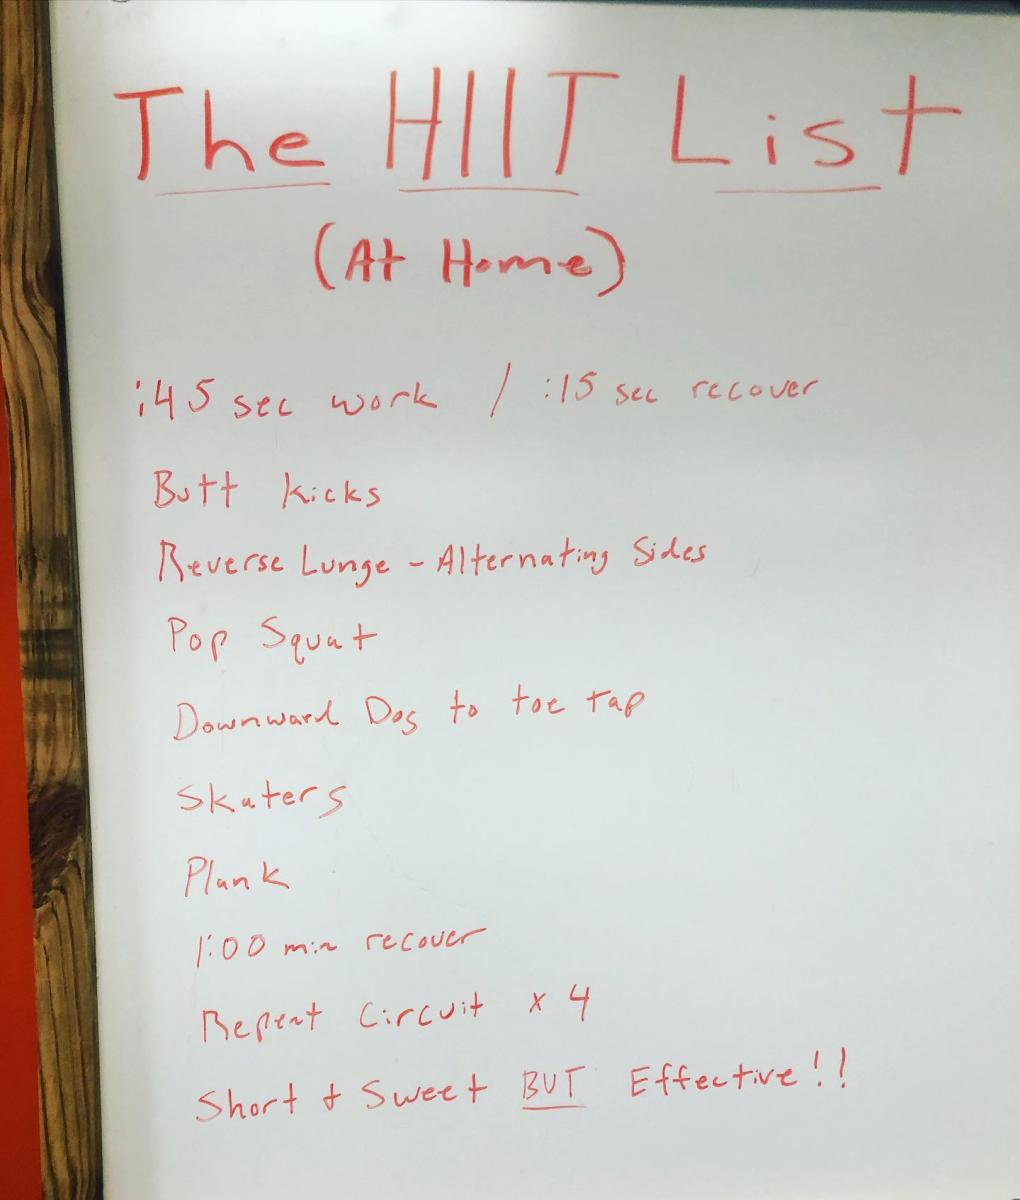 The HIIT List
(At Home)
:45 sec work / :15 sec recover
Butt kicks
Reverse Lunge - Alternating Sides
Pop Squat
Downward Dog to toe tap
Skaters
Plank
1:00 min recover
Repeat Circuit x 4
Short + Sweet BUT Effective!!